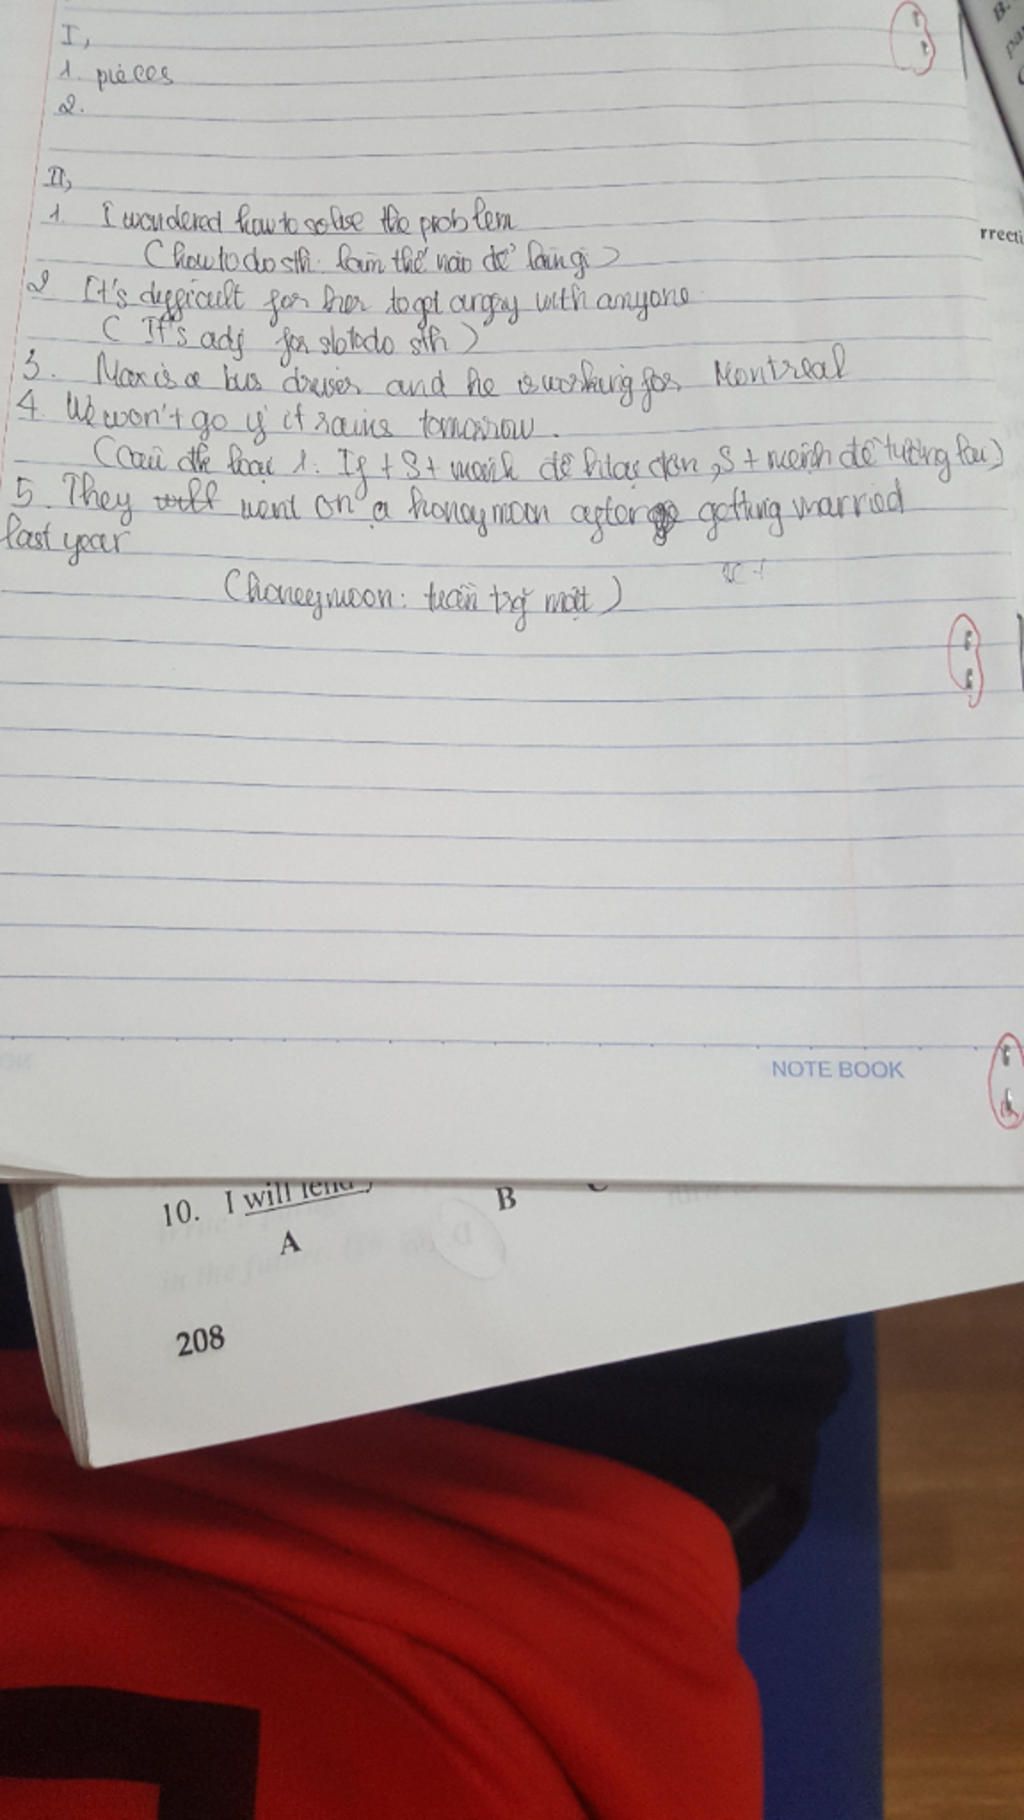 I,
1. pieces
2.
II,
1. I wondered how to solve the problem
(how to do sth: làm thế nào để làm gì)
2 It's difficult for her to get angry with anyone
( It's adj for sb to do sth )
3. Max is a bus driver and he is working for Montreal
4. We won't go if it rains tomorrow.
(câu đk loại 1: If + S + mệnh đề hiện tại đơn, S + mệnh đề tương lai)
5. They went on a honeymoon after getting married
last year
(honeymoon: tuần trăng mật)
rrecti
B.
NOTE BOOK
10. I will lend
A
B
208